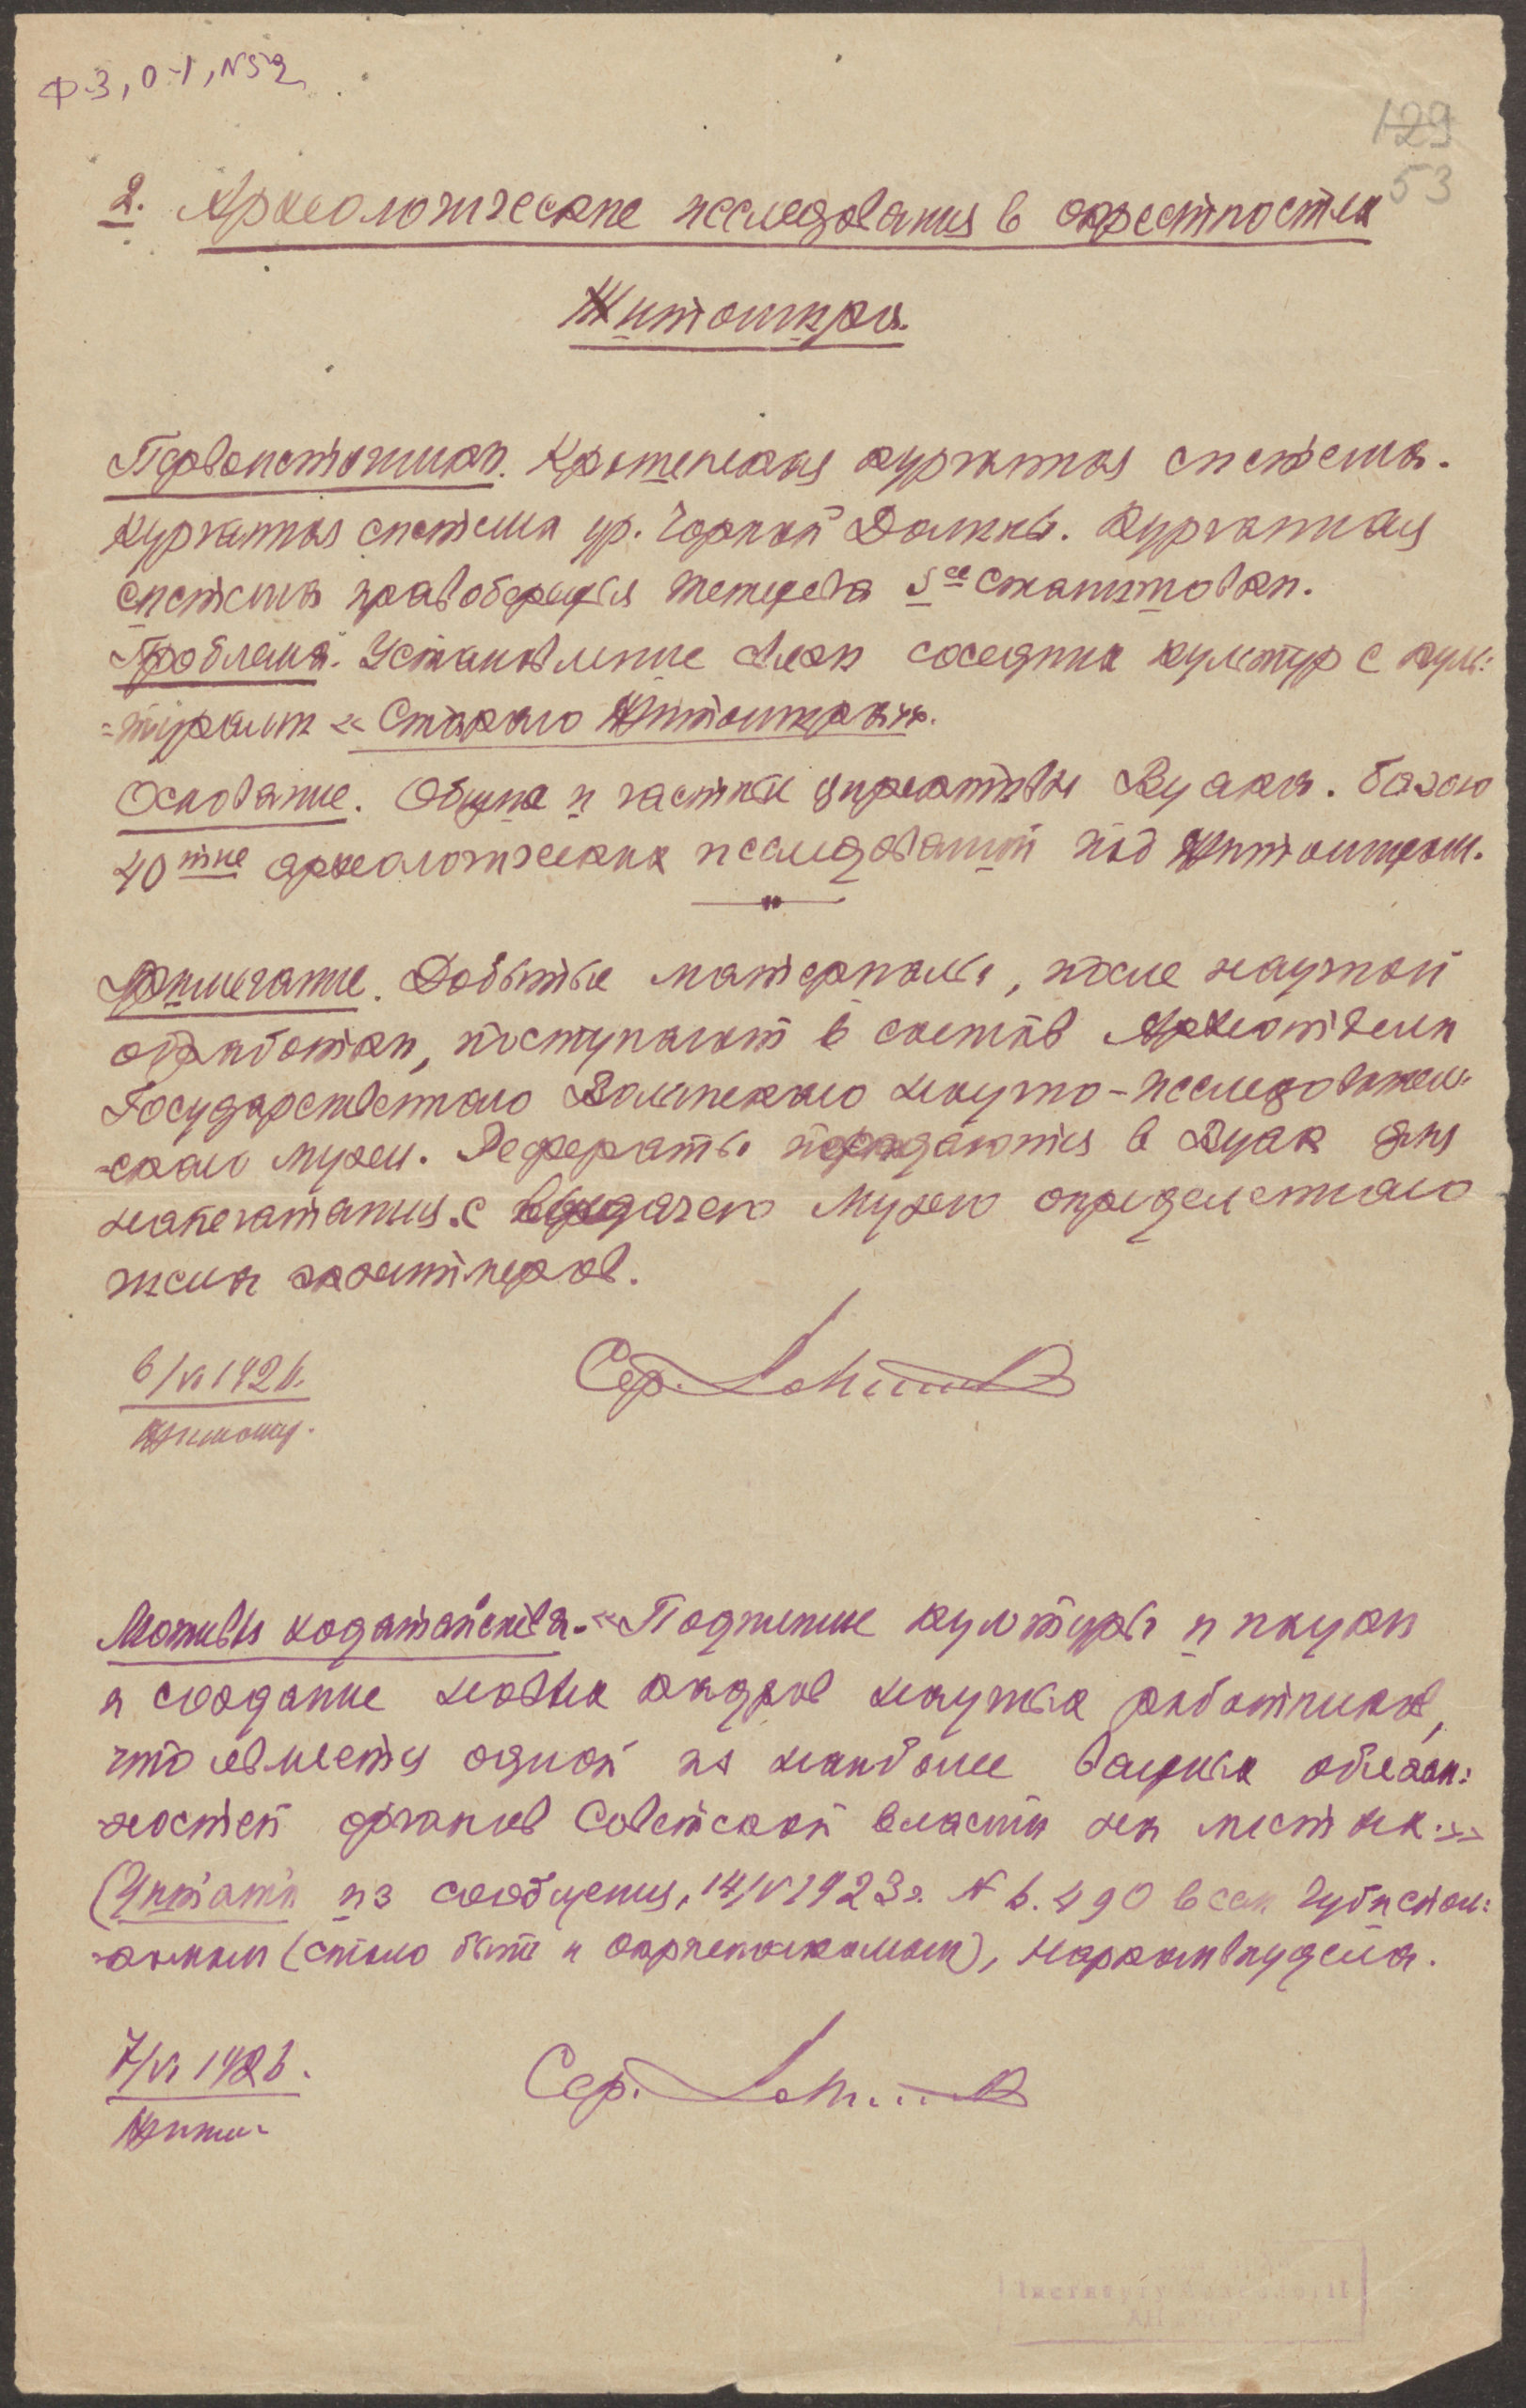 Ф-3, О-1, N52
129
53
2. Археологические исследования в окрестностях
Житомира.
Первоисточники. Крошенская курганная система.
Курганная система ур. Чорной Долины. Курганная
система правобережья Тетерева
Проблема. Установление связи соседних культур с куль:
=турами «Старого Житомира».
Основание. Общие и частные директивы Вуака. базою
40 археологических исследований под Житомиром.
Примечание. Добытые материалы, после научной
обработки, поступают в состав Археотдела
Государственного Волынского научно-исследователь:
=ского музея. Рефераты передаются в Вуак для
напечатания. с выдачею Музею определенного
числа экземпляров.
6/VI 1926.
Житомир.
Сер.
Мотивы ходатайства. «Поднятие культуры и науки
и создание новых кадров научных работников,
что является одной из наиболее важных обязан:
=ностей органов Советской власти на местах.»
(Цитата из сообщения, 14/V 1923 г. № 6.490 всем Губиспол:
=комам (стало быть и окрисполкомам), Наркомвнудела.
7/VI 1926.
Житом.
Сер.